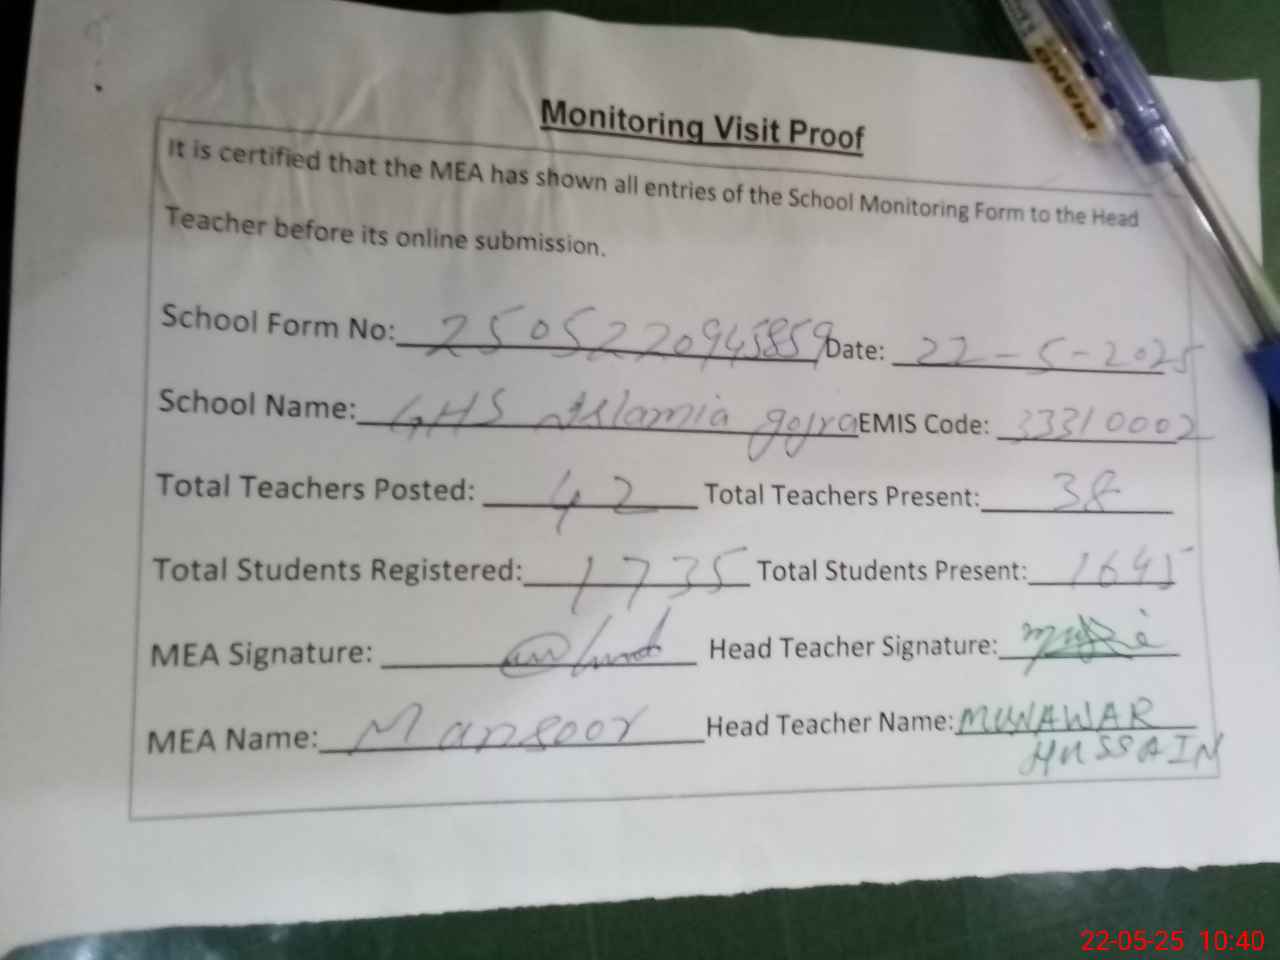 Monitoring Visit Proof
It is certified that the MEA has shown all entries of the School Monitoring Form to the Head
Teacher before its online submission.
School Form No: 2505220945859 Date: 22-5-2025
School Name: GHS Islamia gojra EMIS Code: 33310002
Total Teachers Posted: 42 Total Teachers Present: 38
Total Students Registered: 1735 Total Students Present: 1645
MEA Signature: Head Teacher Signature:
MEA Name: Mansoor Head Teacher Name: MUNAWAR
HUSSAIN
PIANO
22-05-25 10:40